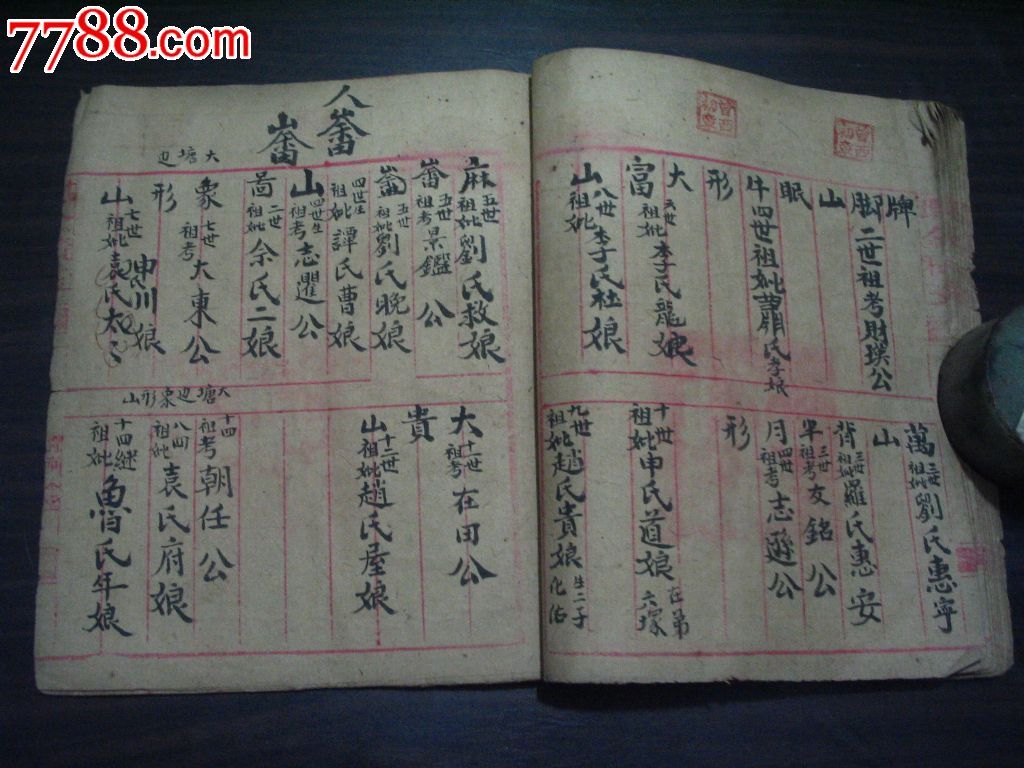 7788.com
牌
脚 二世祖考財瑛公
山
眠
牛 四世祖妣蕭氏孝娘
形
大 六世祖妣李氏龍娘
富
山 八世祖妣李氏杜娘
萬 三世祖妣劉氏惠寧
山
背 三世祖妣羅氏惠安
半 三世祖考友銘公
月 四世祖考志遜公
形
十世祖妣申氏道娘 在弟六塚
九世祖妣趙氏貴娘 生二子化
人
山
麻 五世祖妣劉氏救娘
畨 五世祖考景鑑公
五世祖妣劉氏晚娘
四世生祖妣譚氏曹娘
山 四世生祖考志暹公
啚 二世祖妣佘氏二娘
大塘边
象 七世祖考大東公
形 申川娘
山 七世祖妣袁氏太
大 十一世祖考在田公
貴
山 十二世祖妣趙氏屋娘
大塘边象形山
十四祖考朝任公
祖妣袁氏府娘
十四继祖妣魯氏年娘